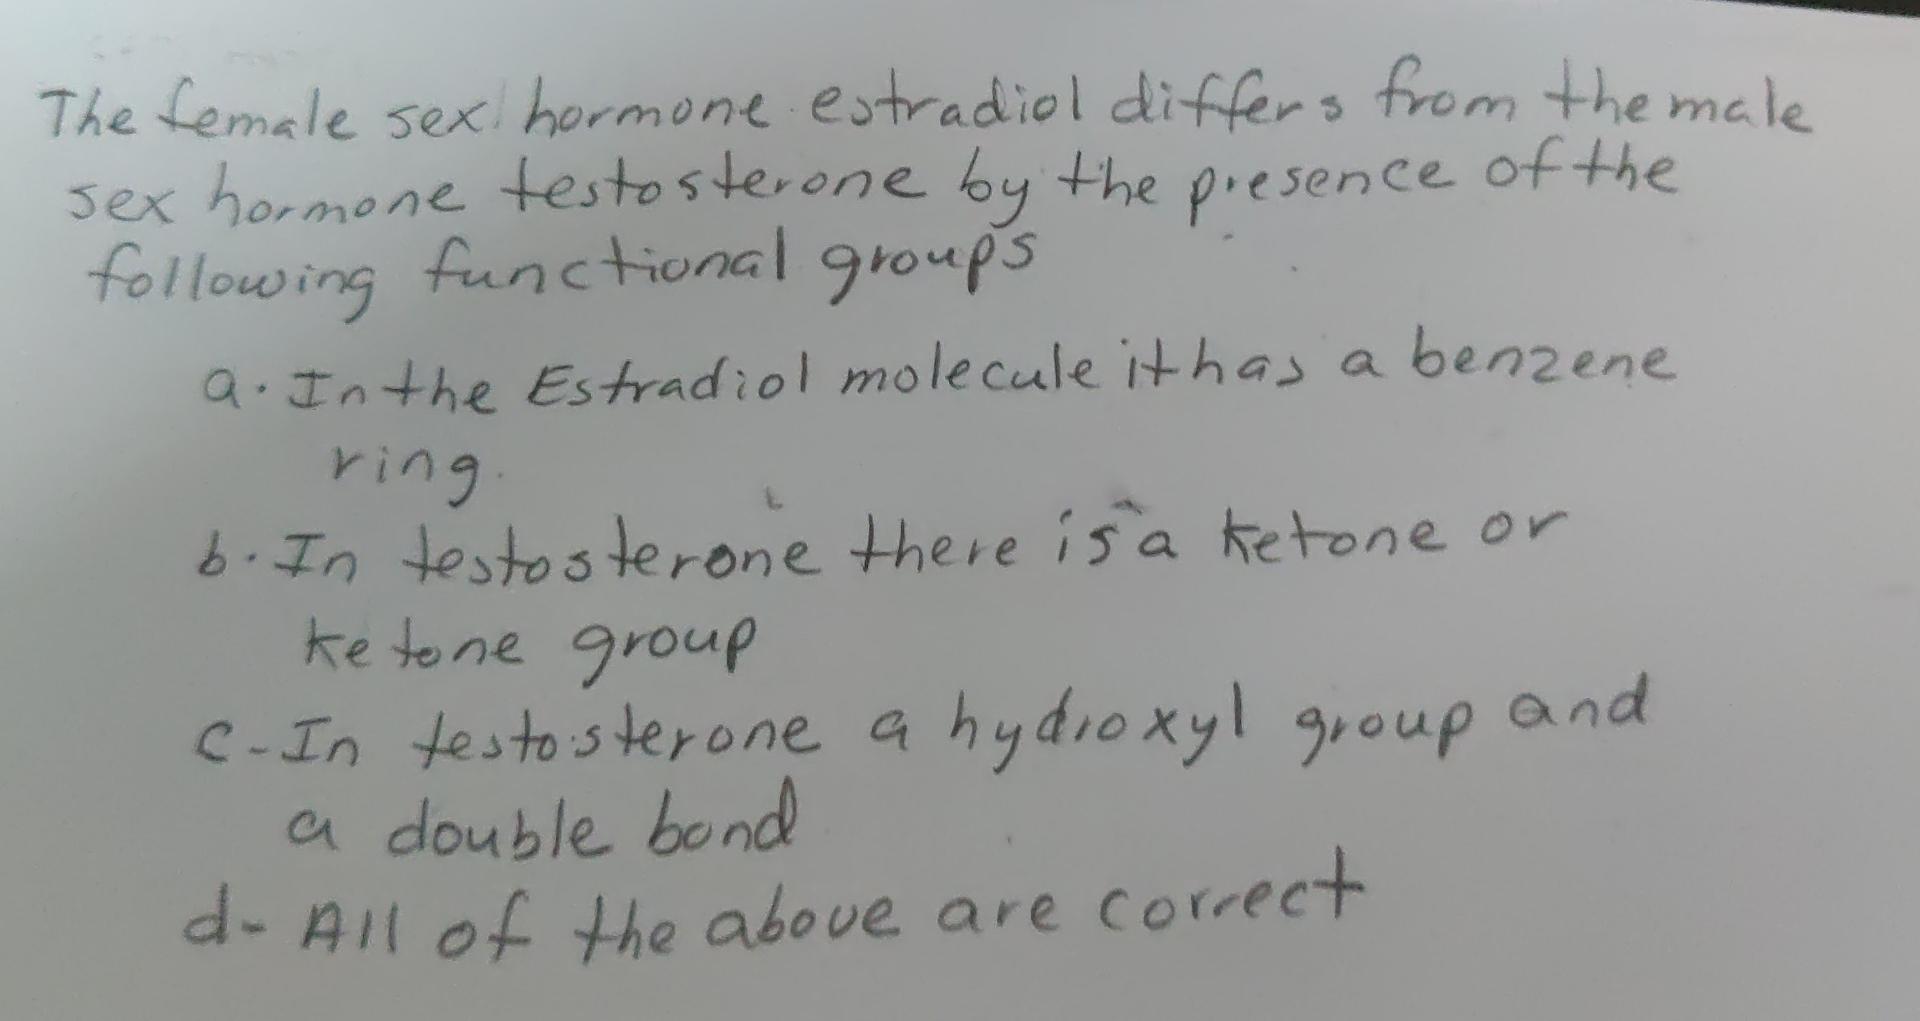 The female sex hormone estradiol differs from the male
sex hormone testosterone by the presence of the
following functional groups
a. In the Estradiol molecule it has a benzene
ring.
b. In testosterone there is a ketone or
ketone group
c- In testosterone a hydroxyl group and
a double bond
d- All of the above are correct